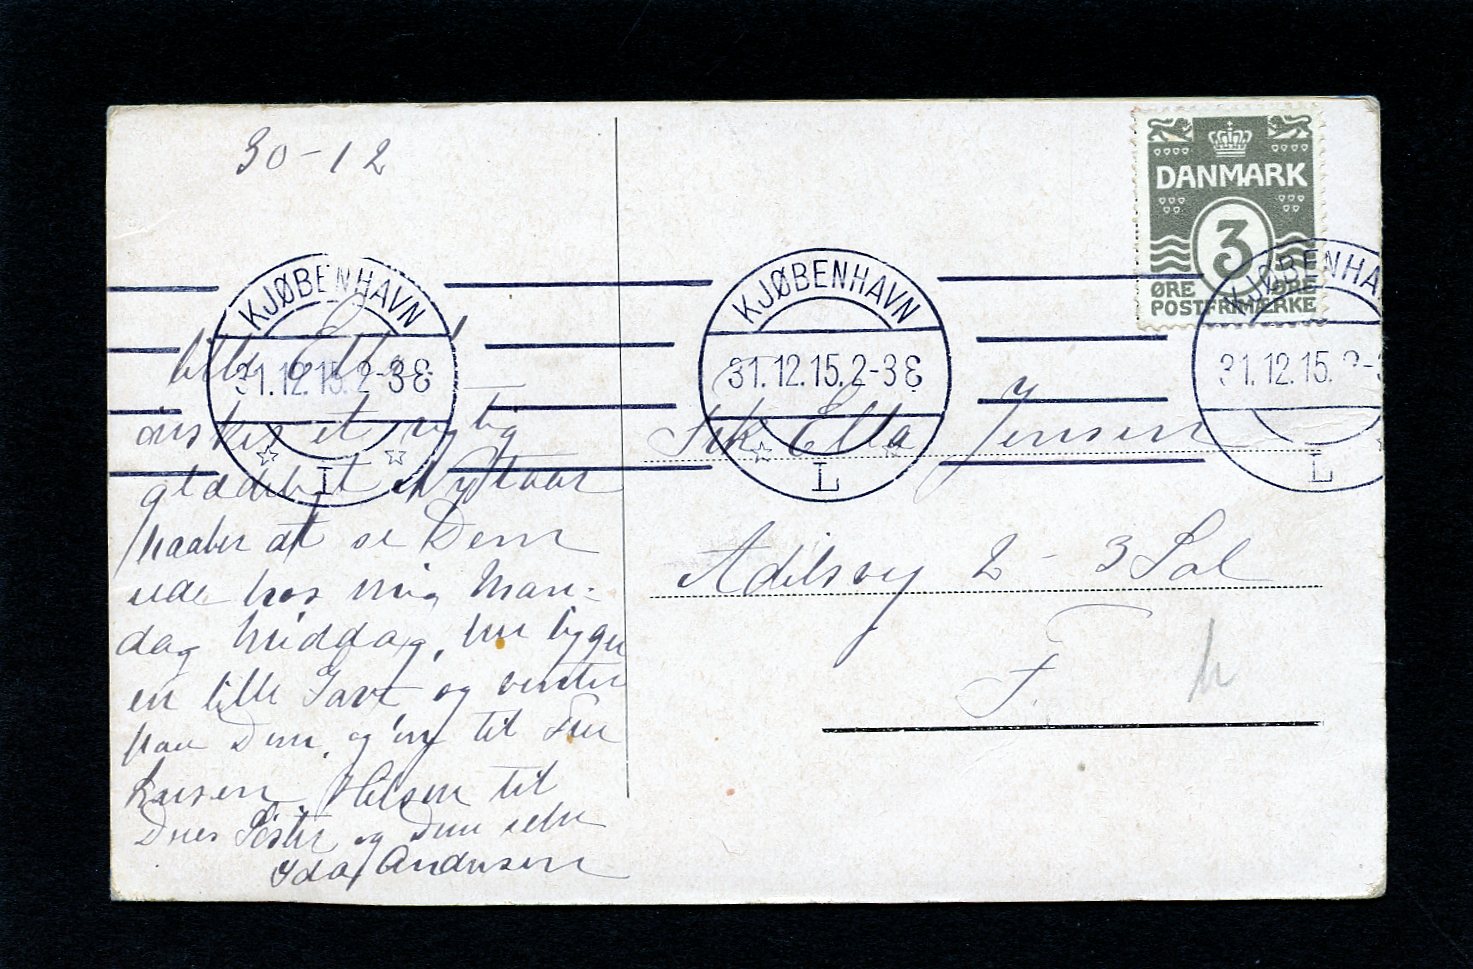 30-12
lille Ella!
ønsker et rigtig
glædeligt Nytaar
haaber at se Dem
ude hos mig Man-
dag Middag, her ligger
en lille Gave og venter
paa Dem, og en til Fru
Larsen. Hilsen til
Deres Søster og Dem selv
Ida Andersen
DANMARK
3
ØRE ØRE
POSTFRIMÆRKE
KJØBENHAVN
31.12.15. 2-3 E
L
KJØBENHAVN
31.12.15. 2-3 E
L
KJØBENHA
31.12.15. 2-3
L
Frk Ella Jensen
Adilsvej 2 - 3 Sal
F.